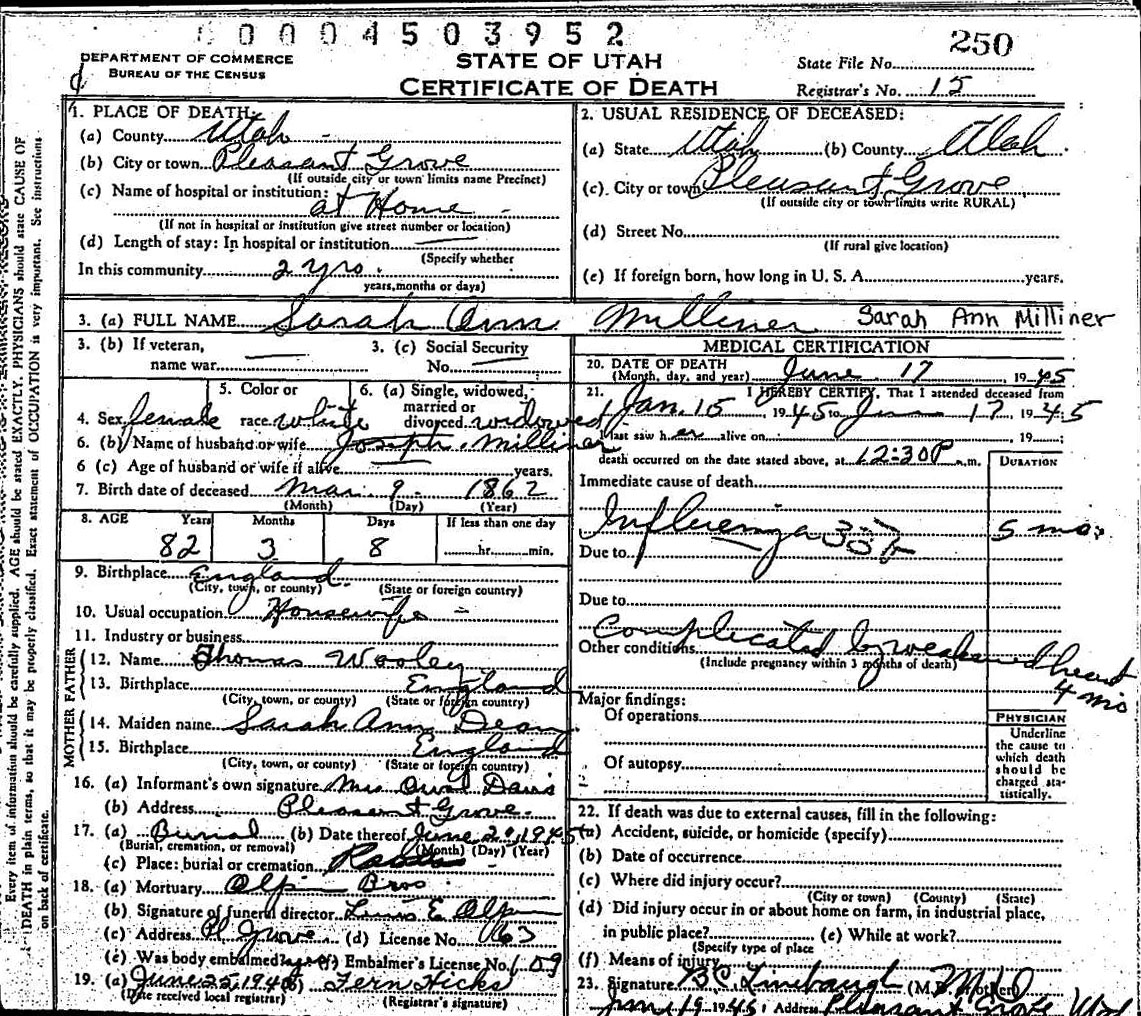 0 0 0 0 4 5 0 3 9 5 2
DEPARTMENT OF COMMERCE
BUREAU OF THE CENSUS
STATE OF UTAH
CERTIFICATE OF DEATH
250
State File No.
Registrar's No. 15
Every item of information should be carefully supplied. AGE should be stated EXACTLY. PHYSICIANS should state CAUSE OF
DEATH in plain terms, so that it may be properly classified. Exact statement of OCCUPATION is very important. See instructions
on back of certificate.
1. PLACE OF DEATH:
(a) County Utah
(b) City or town Pleasant Grove
(If outside city or town limits name Precinct)
(c) Name of hospital or institution:
at Home
(If not in hospital or institution give street number or location)
(d) Length of stay: In hospital or institution
(Specify whether
In this community 2 yrs.
years, months or days)
2. USUAL RESIDENCE OF DECEASED:
(a) State Utah (b) County Utah
(c) City or town Pleasant Grove
(If outside city or town limits write RURAL)
(d) Street No.
(If rural give location)
(e) If foreign born, how long in U. S. A. years.
3. (a) FULL NAME Sarah Ann Milliner Sarah Ann Milliner
3. (b) If veteran,
name war
3. (c) Social Security
No.
4. Sex female
5. Color or
race white
6. (a) Single, widowed,
married or
divorced widowed
6. (b) Name of husband or wife Joseph Milliner
6 (c) Age of husband or wife if alive years.
7. Birth date of deceased Mar. 9 1862
(Month) (Day) (Year)
8. AGE Years Months Days If less than one day
82 3 8 hr. min.
9. Birthplace England
(City, town, or county) (State or foreign country)
10. Usual occupation Housewife
11. Industry or business
FATHER
12. Name Thomas Wooley
13. Birthplace England
(City, town, or county) (State or foreign country)
MOTHER
14. Maiden name Sarah Ann Dean
15. Birthplace England
(City, town, or county) (State or foreign country)
16. (a) Informant's own signature Mrs Davis
(b) Address Pleasant Grove.
17. (a) Burial (b) Date thereof June 20, 1945
(Burial, cremation, or removal) (Month) (Day) (Year)
(c) Place: burial or cremation
18. (a) Mortuary Olpin Bros
(b) Signature of funeral director E. Olpin
(c) Address Pl Grove (d) License No. 63
(e) Was body embalmed? yes (f) Embalmer's License No. 109
19. (a) June 25, 1945 (b) Fern Hicks
(Date received local registrar) (Registrar's signature)
MEDICAL CERTIFICATION
20. DATE OF DEATH
(Month, day, and year) June 17 1945
21. I HEREBY CERTIFY, That I attended deceased from
Jan. 15, 1945 to 17, 1945
I last saw her alive on 19 ;
death occurred on the date stated above, at 12:30P m.
DURATION
Immediate cause of death
Influenza 33 5 mo.
Due to
Due to
Complicated by weakened heart
Other conditions
(Include pregnancy within 3 months of death)
4 mo
Major findings:
Of operations
Of autopsy
PHYSICIAN
Underline
the cause to
which death
should be
charged sta-
tistically.
22. If death was due to external causes, fill in the following:
(a) Accident, suicide, or homicide (specify)
(b) Date of occurrence
(c) Where did injury occur?
(City or town) (County) (State)
(d) Did injury occur in or about home on farm, in industrial place,
in public place? (e) While at work?
(Specify type of place
(f) Means of injury
23. Signature B.C. Linebaugh (M.D. or other) M.D
19 1945 Address Pleasant Grove